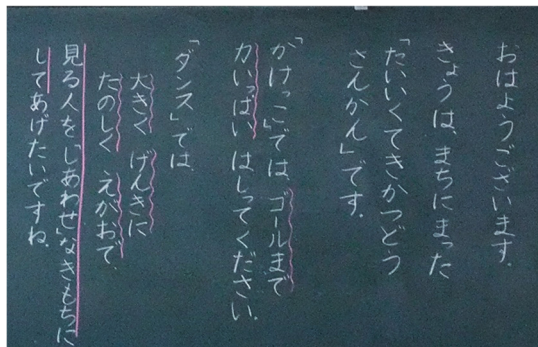 おはようございます。
きょうは、まちにまった
「たいいくてきかつどう
さんかん」です。
「かけっこ」では、ゴールまで
力いっぱい はしってください。
「ダンス」では、
大きく げんきに
たのしく えがおで、
見る人を「しあわせ」なきもちに
してあげたいですね。